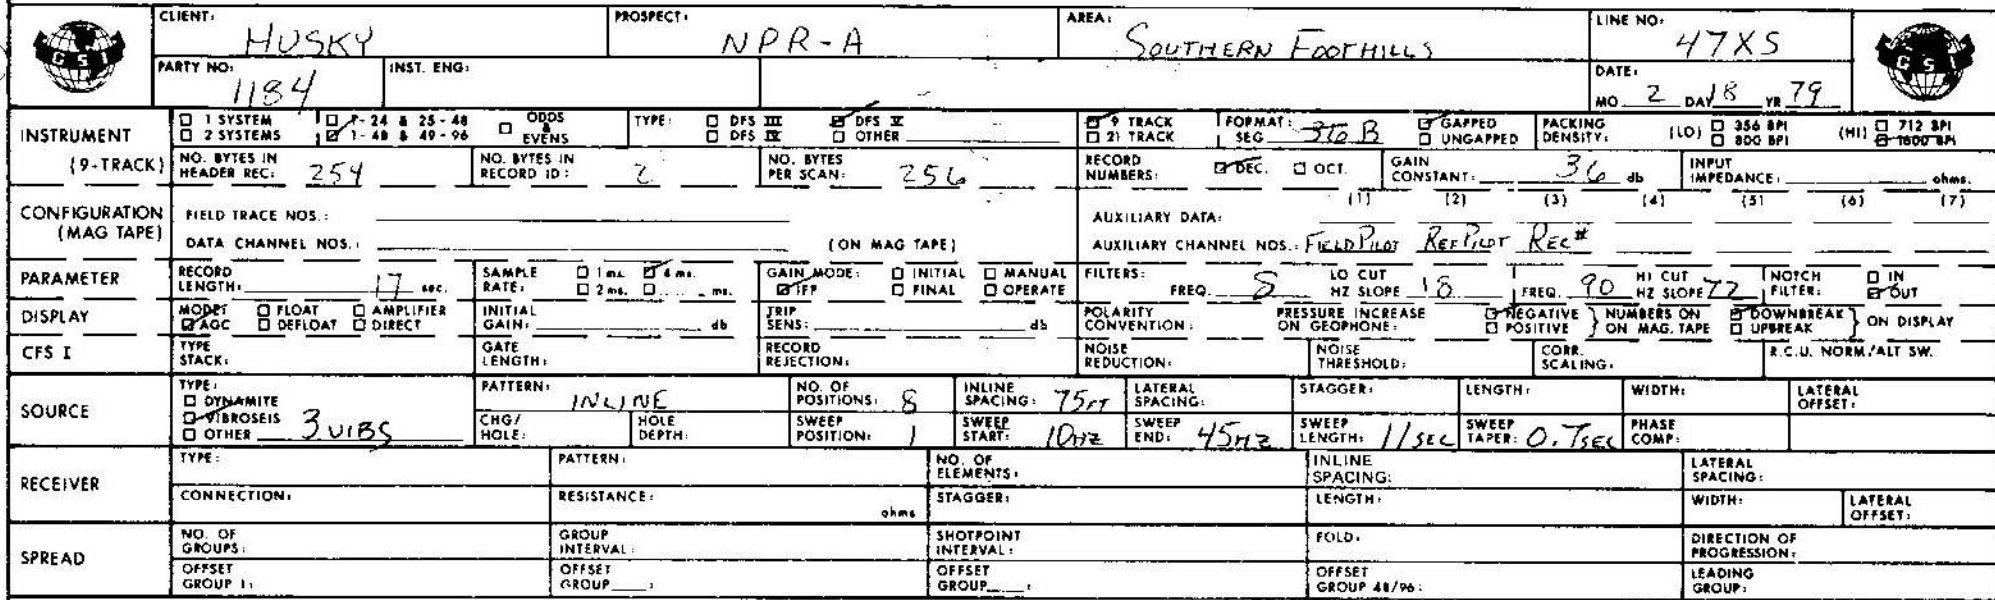 CLIENT: HUSKY PROSPECT: NPR-A AREA: SOUTHERN FOOTHILLS LINE NO: 47XS
GSI GSI
PARTY NO: 1184 INST. ENG: DATE: MO. 2 DAY 18 YR 79
INSTRUMENT (9-TRACK)
1 SYSTEM 1-24 & 25-48 ODDS & EVENS TYPE: DFS III DFS V 9 TRACK FORMAT: SEG 36 B GAPPED PACKING DENSITY: (LO) 356 BPI (HI) 712 BPI
2 SYSTEMS 1-48 & 49-96 DFS IV OTHER 21 TRACK UNGAPPED 800 BPI 1600 BPI
NO. BYTES IN HEADER REC: 254 NO. BYTES IN RECORD ID: 2 NO. BYTES PER SCAN: 256 RECORD NUMBERS: DEC. OCT. GAIN CONSTANT: 36 db INPUT IMPEDANCE: ohms.
CONFIGURATION (MAG TAPE)
FIELD TRACE NOS.: AUXILIARY DATA: (1) (2) (3) (4) (5) (6) (7)
DATA CHANNEL NOS.: (ON MAG TAPE) AUXILIARY CHANNEL NOS.: FIELD PILOT REF PILOT REC#
PARAMETER
RECORD LENGTH: 17 sec. SAMPLE RATE: 1 ms. 4 ms. 2 ms. ms. GAIN MODE: INITIAL MANUAL IFP FINAL OPERATE FILTERS: FREQ. 8 LO CUT HZ SLOPE 18 FREQ. 90 HI CUT HZ SLOPE 72 NOTCH FILTER: IN OUT
DISPLAY
MODE: FLOAT AMPLIFIER AGC DEFLOAT DIRECT INITIAL GAIN: db TRIP SENS: db POLARITY CONVENTION: PRESSURE INCREASE ON GEOPHONE: NEGATIVE POSITIVE NUMBERS ON ON MAG. TAPE DOWNBREAK UPBREAK ON DISPLAY
CFS I
TYPE STACK: GATE LENGTH: RECORD REJECTION: NOISE REDUCTION: NOISE THRESHOLD: CORR. SCALING: R.C.U. NORM/ALT SW.
SOURCE
TYPE: DYNAMITE VIBROSEIS OTHER 3 VIBS PATTERN: INLINE NO. OF POSITIONS: 8 INLINE SPACING: 75FT LATERAL SPACING: STAGGER: LENGTH: WIDTH: LATERAL OFFSET:
CHG/ HOLE: HOLE DEPTH: SWEEP POSITION: 1 SWEEP START: 10HZ SWEEP END: 45HZ SWEEP LENGTH: 11SEC SWEEP TAPER: 0.7SEC PHASE COMP:
RECEIVER
TYPE: PATTERN: NO. OF ELEMENTS: INLINE SPACING: LATERAL SPACING:
CONNECTION: RESISTANCE: ohms STAGGER: LENGTH: WIDTH: LATERAL OFFSET:
SPREAD
NO. OF GROUPS: GROUP INTERVAL: SHOTPOINT INTERVAL: FOLD: DIRECTION OF PROGRESSION:
OFFSET GROUP 1: OFFSET GROUP : OFFSET GROUP : OFFSET GROUP 48/96: LEADING GROUP: